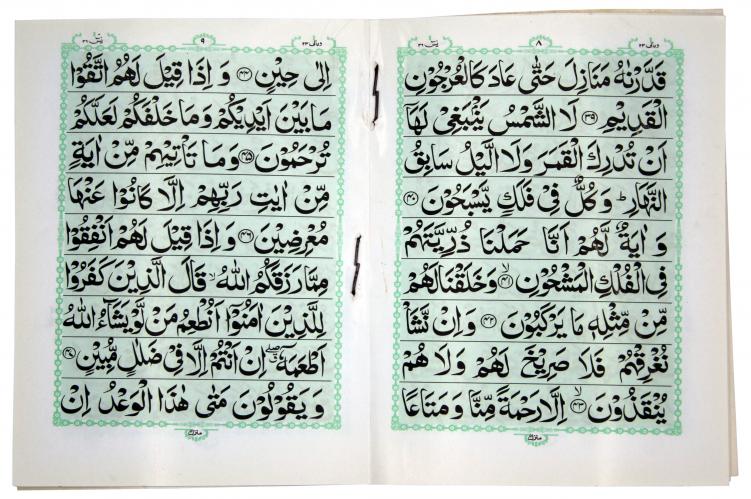 ٨
قَدَّرْنٰهُ مَنَازِلَ حَتّٰى عَادَ كَالْعُرْجُوْنِ
الْقَدِيْمِ ﴿٣٩﴾ لَا الشَّمْسُ يَنْۢبَغِيْ لَهَاۤ
اَنْ تُدْرِكَ الْقَمَرَ وَلَا الَّيْلُ سَابِقُ
النَّهَارِ ؕ وَكُلٌّ فِيْ فَلَكٍ يَّسْبَحُوْنَ ﴿٤٠﴾
وَ اٰيَةٌ لَّهُمْ اَنَّا حَمَلْنَا ذُرِّيَّتَهُمْ
فِي الْفُلْكِ الْمَشْحُوْنِ ﴿٤١﴾ۙ وَخَلَقْنَا لَهُمْ
مِّنْ مِّثْلِهٖ مَا يَرْكَبُوْنَ ﴿٤٢﴾ وَاِنْ نَّشَاْ
نُغْرِقْهُمْ فَلَا صَرِيْخَ لَهُمْ وَلَا هُمْ
يُنْقَذُوْنَ ﴿٤٣﴾ۙ اِلَّا رَحْمَةً مِّنَّا وَمَتَاعًا
٩
اِلٰى حِيْنٍ ﴿٤٤﴾ وَ اِذَا قِيْلَ لَهُمُ اتَّقُوْا
مَا بَيْنَ اَيْدِيْكُمْ وَمَا خَلْفَكُمْ لَعَلَّكُمْ
تُرْحَمُوْنَ ﴿٤٥﴾ وَمَا تَاْتِيْهِمْ مِّنْ اٰيَةٍ
مِّنْ اٰيٰتِ رَبِّهِمْ اِلَّا كَانُوْا عَنْهَا
مُعْرِضِيْنَ ﴿٤٦﴾ وَاِذَا قِيْلَ لَهُمْ اَنْفِقُوْا
مِمَّا رَزَقَكُمُ اللّٰهُ ۙ قَالَ الَّذِيْنَ كَفَرُوْا
لِلَّذِيْنَ اٰمَنُوْۤا اَنُطْعِمُ مَنْ لَّوْ يَشَآءُ اللّٰهُ
اَطْعَمَهٗۤ ۖ اِنْ اَنْتُمْ اِلَّا فِيْ ضَلٰلٍ مُّبِيْنٍ ﴿٤٧﴾
وَيَقُوْلُوْنَ مَتٰى هٰذَا الْوَعْدُ اِنْ